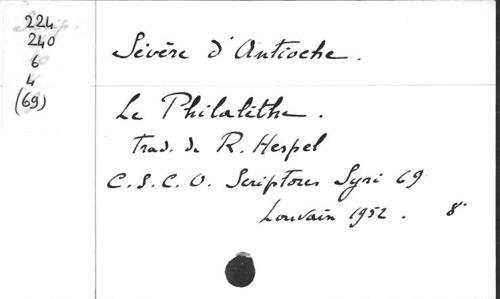 224
240
6
4
(69)
Sévère d'Antioche.
Le Philalèthe.
Trad. de R. Hespel
C.S.C.O. Scriptores Syri 69
Louvain 1952. 8°